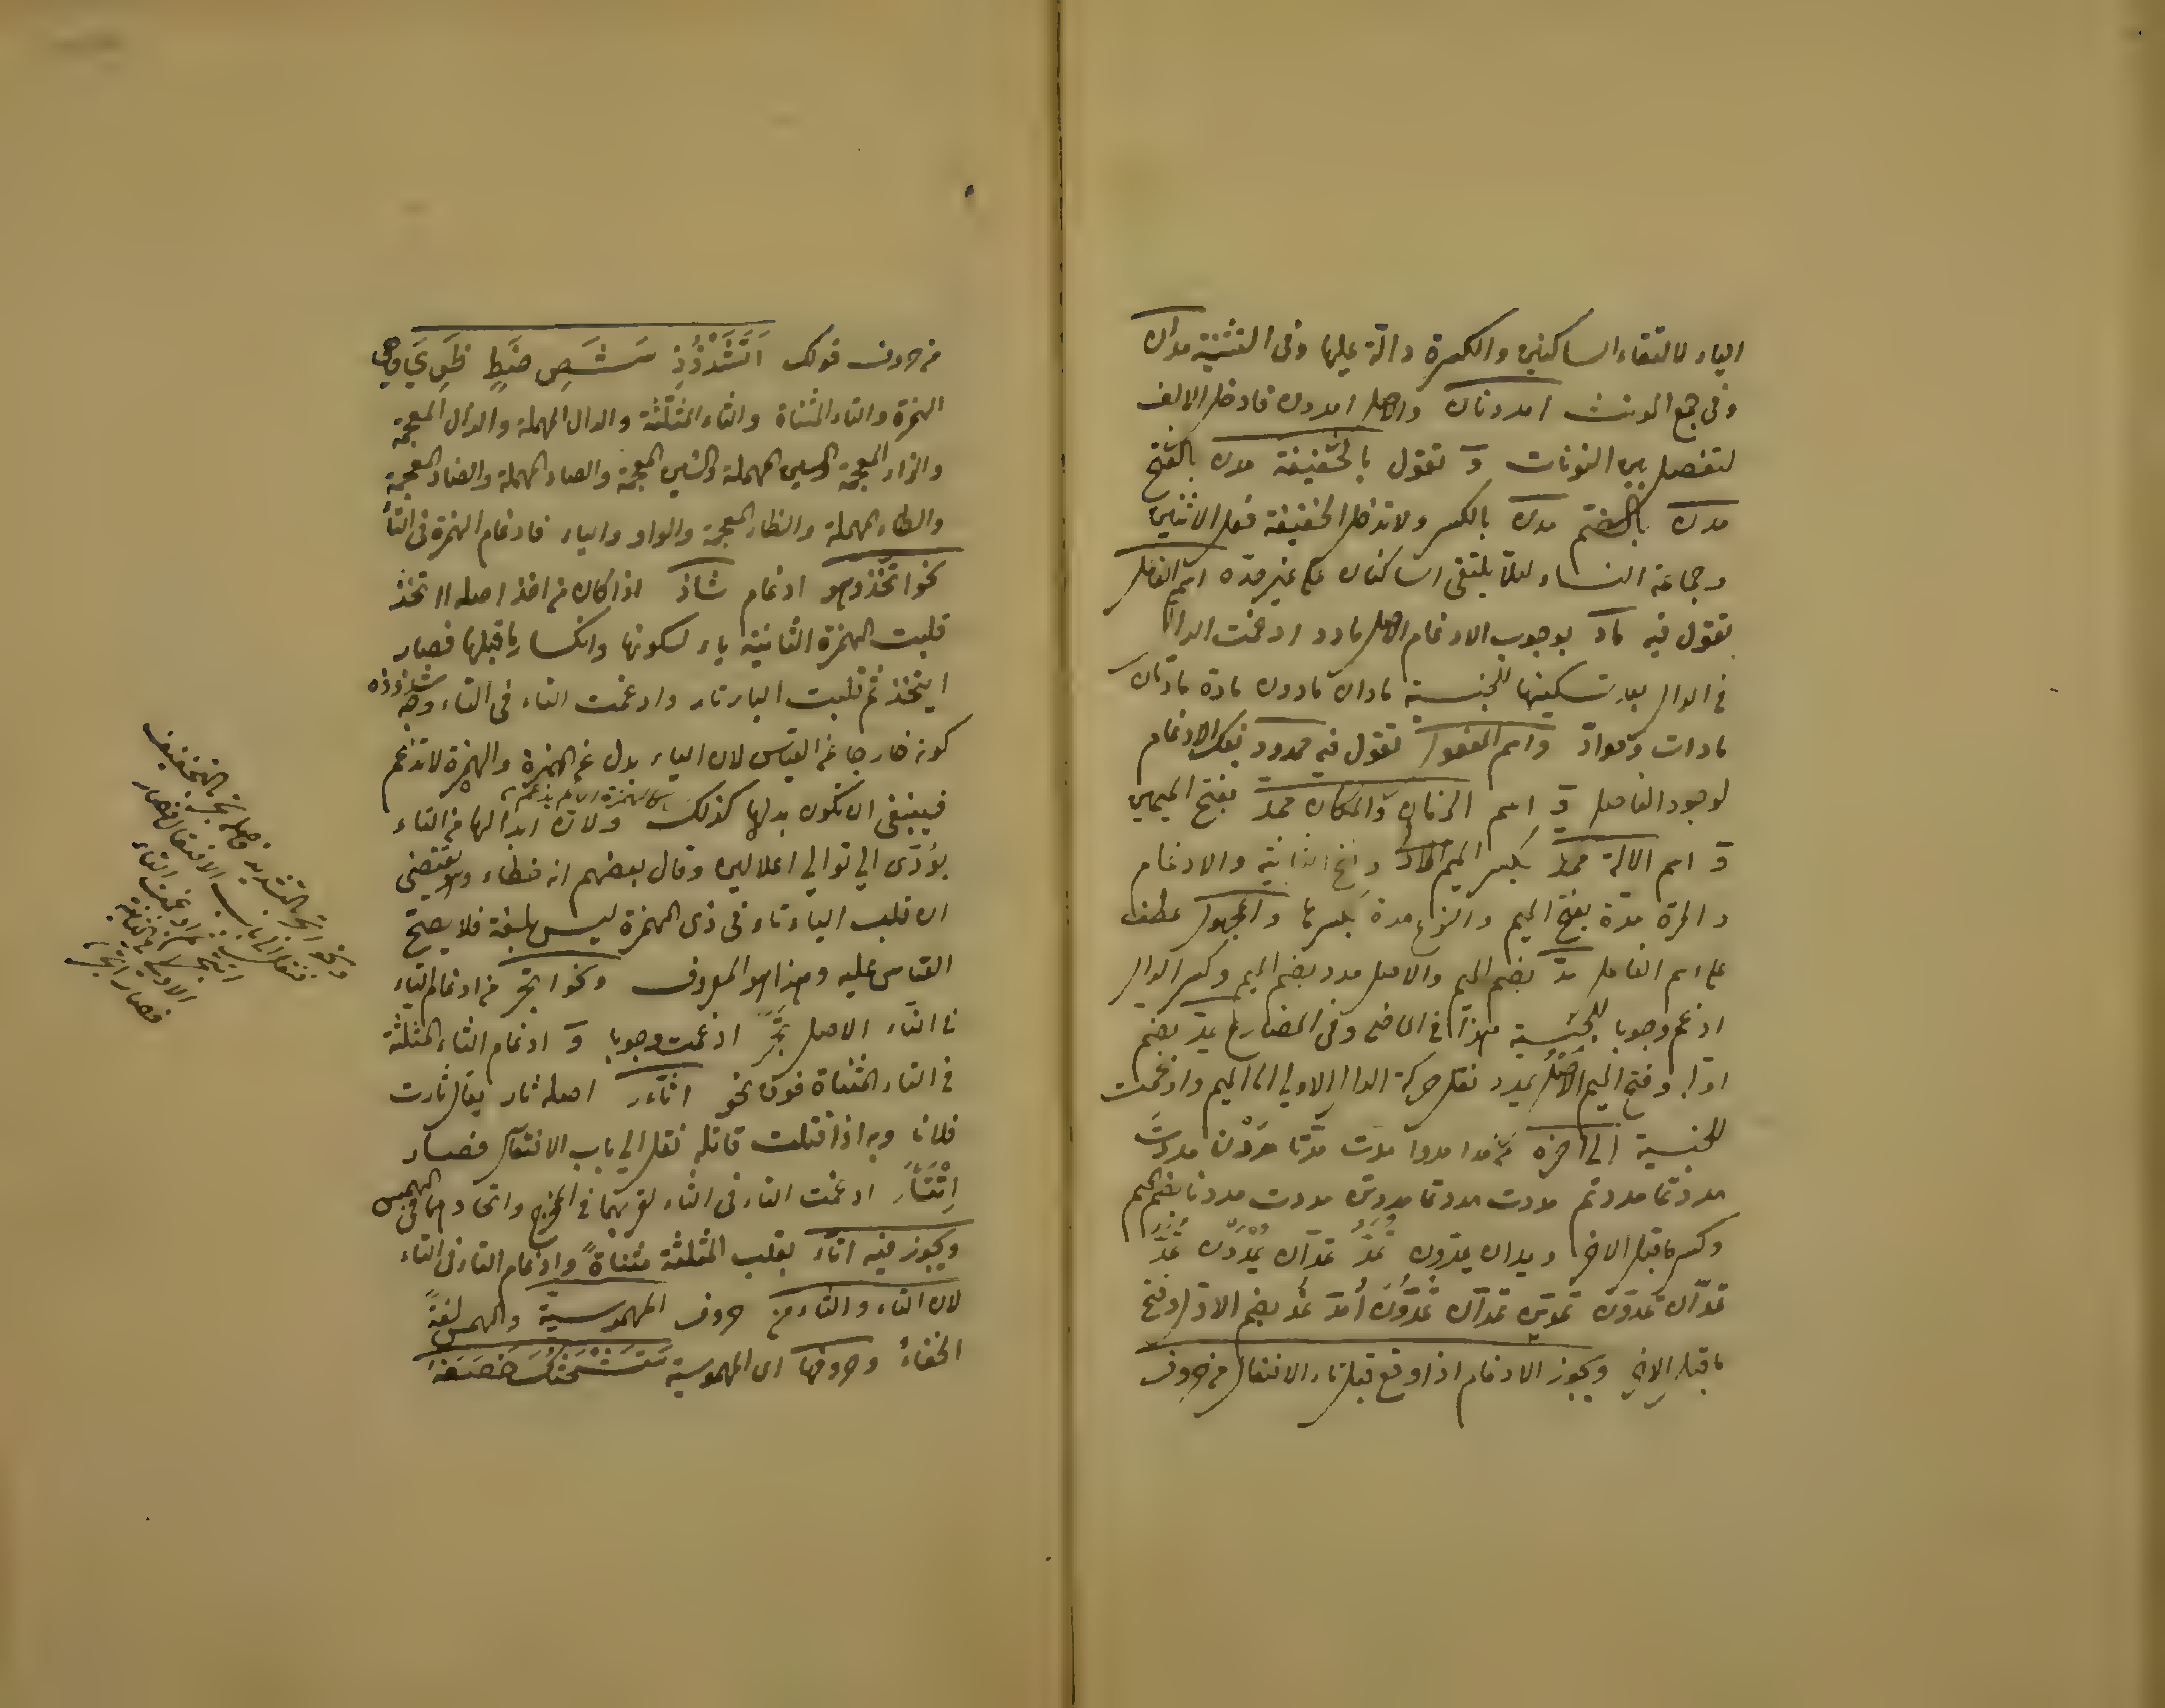 الياء لالتقاء الساكنين والكسرة دالة عليها وفى التثنية مدان
وفى جمع المونث امددنان والاصل امددن فادخل الالف
لتفصل بين النونات و تقول بالخفيفة مدن بالفتح
مدن بالضم مدن بالكسر ولا تدخل الخفيفة فعل الاثنين
وجماعة النساء لئلا يلتقى الساكنان على غير حده اسم الفاعل
تقول فيه ماد بوجوب الادغام الاصل مادد ادغمت الدال
فى الدال بعد تسكينها للجنسية مادان مادون مادة مادتان
مادات ومواد واسم المفعول تقول فيه ممدود بفك الادغام
لوجود الفاصل و اسم الزمان والمكان ممد بفتح الميمين
و اسم الالة ممد بكسر الميم الاول وفتح الثانية والادغام
والمرة مدة بفتح الميم والنوع مدة بكسرها والمجهول عطف
على اسم الفاعل مد بضم الميم والاصل مدد بضم الميم وكسر الدال
ادغم وجوبا للجنسية هذا فى الماضى وفى المضارع يمد بضم
اوله وفتح الميم الاصل يمدد نقل حركة الدال الاولى الى الميم وادغمت
للجنسية الى اخره مدا مدوا مدت مدتا مددن مددت
مددتما مددتم مددت مددتما مددتن مددت مددنا بضم الميم
وكسر ماقبل الاخر ويمدان يمدون تمد تمدان يمددن تمد
تمدان تمدون تمدين تمدان تمددن امد نمد بضم الاول وفتح
ماقبل الاخر ويجوز الادغام اذا وقع قبل تاء الافتعال من حروف
من حروف قولك اتثدذز سشص ضط ظوي وهى
الهمزة والتاء المثناة والثاء المثلثة والدال المهملة والذال المعجمة
والزاء المعجمة والسين المهملة والشين المعجمة والصاد المهملة والضاد المعجمة
والطاء المهملة والظاء المعجمة والواو والياء فادغام الهمزة فى التاء
نحو اتخذ وهو ادغام شاذ اذا كان من اخذ اصله ااتخذ
قلبت الهمزة الثانية ياء لسكونها وانكسار ماقبلها فصار
ايتخذ ثم قلبت الياء تاء وادغمت التاء فى التاء وجه شذوذه
كونه خارجا عن القياس لان الياء بدل عن الهمزة والهمزة لا تدغم
فينبغى ان تكون بدلها كذلك ولان ابدالها من التاء
يؤدى الى توالى اعلالين وقال بعضهم انه خطاء ويقتضى
ان قلب الياء تاء فى ذى الهمزة ليس بلغة فلا يصح
القياس عليه وهذا هو المعروف ونحو اتجر من ادغام التاء
فى التاء الاصل تجر ادغمت وجوبا و ادغام الثاء المثلثة
فى التاء المثناة فوق نحو اثار اصله ثار يقال ثارت
فلانا وبه اذا قتلت قاتله نقل الى باب الافتعال فصار
اثتار ادغمت التاء فى الثاء لقربهما فى المخرج واتحادهما فى الهمس
ويجوز فيه اتار بقلب المثلثة مثناة وادغام التاء فى التاء
لان التاء والثاء من حروف المهموسية والهمس لغة
الخفاء وحروفها اى المهموسية ستشحثك خصفه
ونحو اتجر بالتشديد اصله تجر بالتخفيف
فنقل الى باب الافتعال فصار
اتتجر ادغمت التاء
الاولى فى الثانية
فصار اتجر